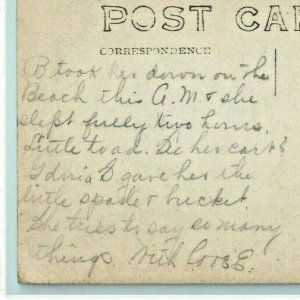 POST CAR
CORRESPONDENCE
B took her down on the
Beach this A.M. & she
slept fully two hours.
little toad. her cart &
B. gave her the
little spade & bucket.
She tries to say so many
things With Love E.